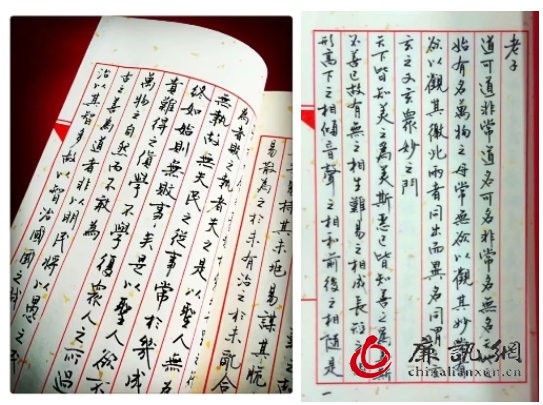 老子
道可道非常道名可名非常名無名
始有名萬物之母常無欲以觀其妙
欲以觀其徼此兩者同出而異名同謂
玄之又玄眾妙之門
天下皆知美之為美斯惡已皆知善之為善斯
不善已故有無之相生難易之相成長短之
形高下之相傾音聲之相和前後之相隨是
一
廉訊網
chinalianxun.cn
持其未兆易謀其脆
易散為之於未有治之於未亂合
為者敗之執者失之是以聖人無為
無執故無失民之從事常於幾成
終如始則無敗事矣是以聖人欲不
貴難得之貨學不學復眾人之所過
萬物之自然而不敢為
古之善為道者非以明民將以愚之
治以其智多故以智治國國之賊